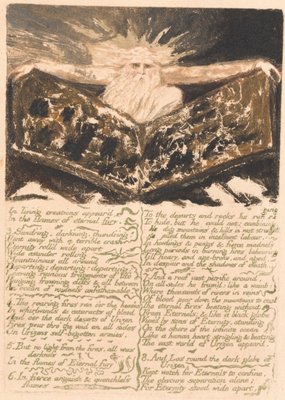 In living creations appear'd
In the flames of eternal fury.
3. Sund'ring, dark'ning, thund'ring!
Rent away with a terrible crash
Eternity roll'd wide apart
Wide asunder rolling
Mountainous all around
Departing; departing; departing:
Leaving ruinous fragments of life
Hanging frowning cliffs & all between
An ocean of voidness unfathomable.
4. The roaring fires ran o'er the heav'ns
In whirlwinds & cataracts of blood
And o'er the dark desarts of Urizen
Fires pour thro' the void on all sides
On Urizens self-begotten armies.
5. But no light from the fires. all was
darkness
In the flames of Eternal fury
6. In fierce anguish & quenchless
flames
To the desarts and rocks he ran raging
To hide, but he could not: combining
He dug mountains & hills in vast strength,
He piled them in incessant labour,
In howlings & pangs & fierce madness
Long periods in burning fires labouring
Till hoary, and age-broke, and aged,
In despair and the shadows of death.
7. And a roof, vast petrific around,
On all sides he fram'd: like a womb;
Where thousands of rivers in veins
Of blood pour down the mountains to cool
The eternal fires beating without
From Eternals; & like a black globe
View'd by sons of Eternity, standing
On the shore of the infinite ocean
Like a human heart strugling & beating
The vast world of Urizen appear'd.
8. And Los round the dark globe of
Urizen,
Kept watch for Eternals to confine,
The obscure separation alone;
For Eternity stood wide apart,